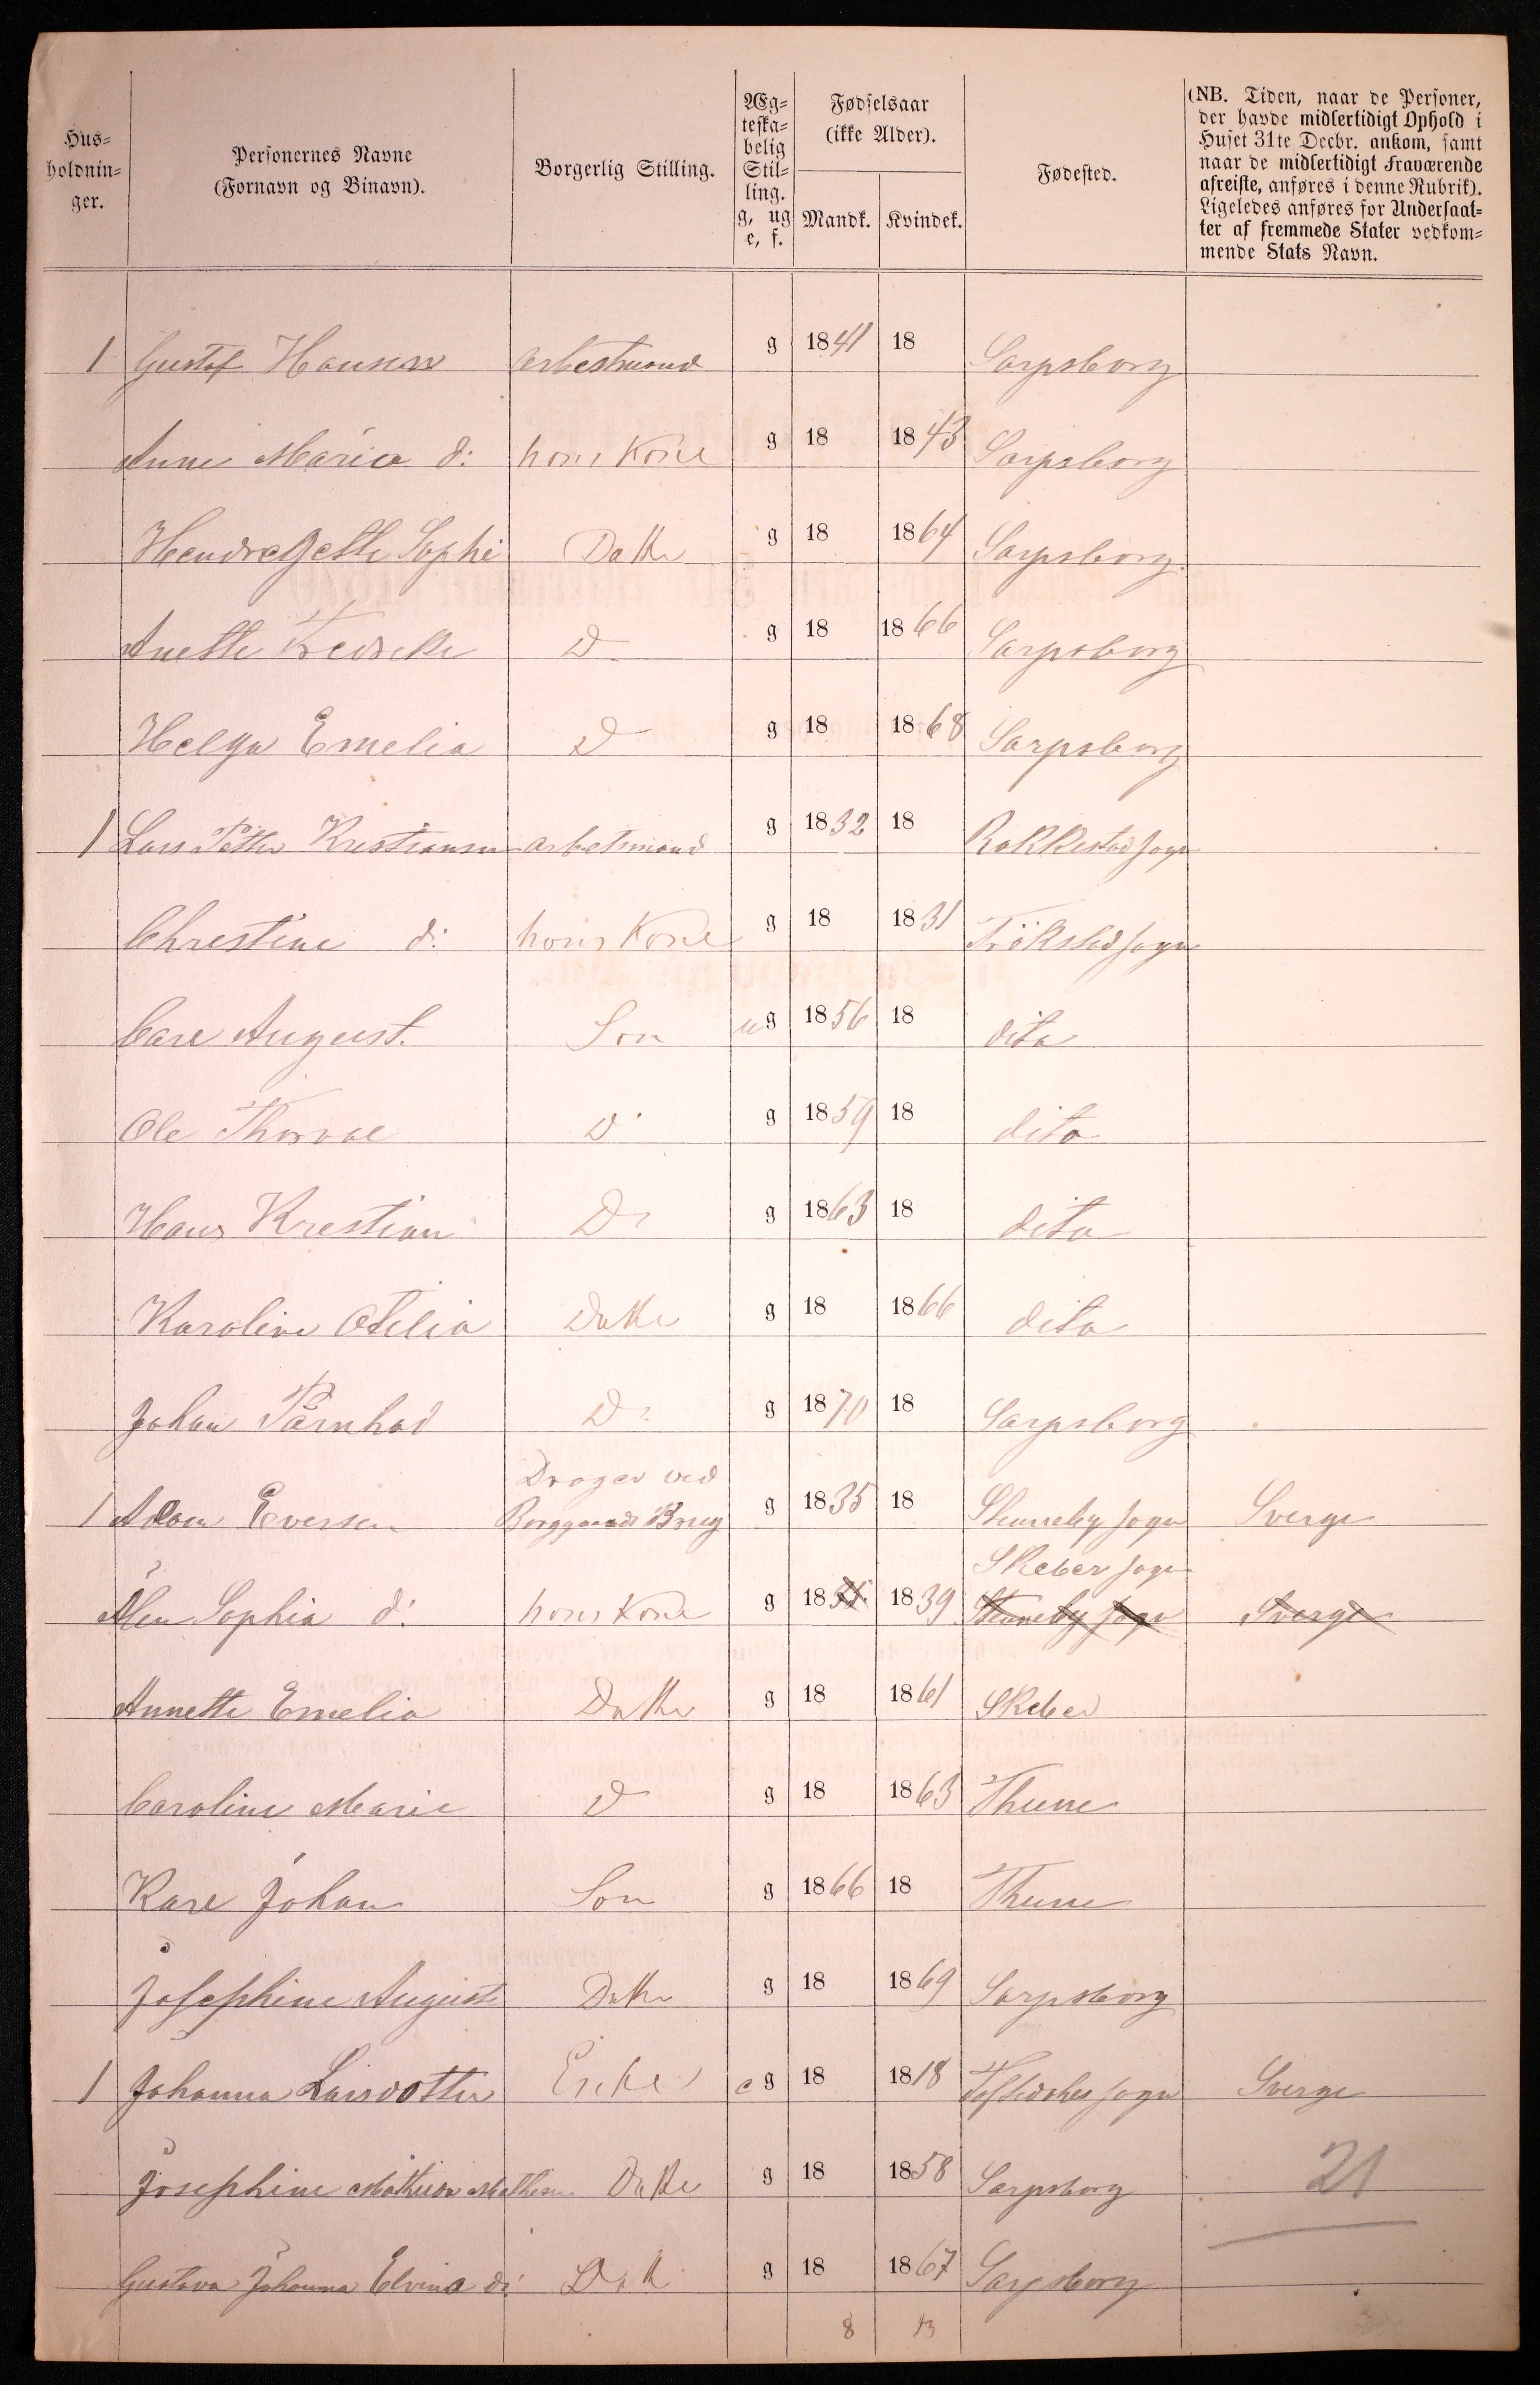 Hus-
holdnin-
ger.
Personernes Navne
(Fornavn og Binavn).
Borgerlig Stilling.
Æg-
teska-
belig
Stil-
ling.
g, ug
e, f.
Fødselsaar
(ikke Alder).
Mandk. Kvindek.
Fødested.
(NB. Tiden, naar de Personer,
der havde midlertidigt Ophold i
Huset 31te Decbr. ankom, samt
naar de midlertidigt Fraværende
afreiste, anføres i denne Rubrik).
Ligeledes anføres for Undersaat-
ter af fremmede Stater vedkom-
mende Stats Navn.
1 Gustaf Hansen Arbestmand g 1841 18 Sarpsborg
Anne Maria d: hans Kone g 18 1843 Sarpsborg
Hendregette Sophi Datte g 18 1864 Sarpsborg
Anette Fredreke D g 18 1866 Sarpsborg
Helga Emelia D g 18 1868 Sarpsborg
1 Lars Petter Kristiansen arbetsmand g 1832 18 Rakkestad sogn
Chrestine d: hans Kone g 18 1831 Trökstad sogn
Carl August. Son ug 1856 18 dita
Ole Thorval D g 1859 18 dito
Hans Krestian Do g 1863 18 dita
Karoline Otelia Datte g 18 1866 dita
Johan Pärnhad D g 1870 18 Sarpsborg
Drager ved
1 Adam Eversen Borggaards Brug g 1835 18 Stenneby sogn Sverge
Skeber sogn
Älen Sophia d: hans Kone g 1835 1839 Stenneby sogn Sverge
Annette Emelia Datte g 18 1861 Skeber
Caroline Marie D g 18 1863 Thune
Karl Johan Son g 1866 18 Thune
Josephine Auguste Datte g 18 1869 Sarpsborg
1 Johanna Larsdotter Enke eg 18 1818 sogn Sverge
Josephine Mathesen Datte g 18 1858 Sarpsborg
21
Gustava Johanna Elvina d: Datt g 18 1867 Sarpsborg
8 13